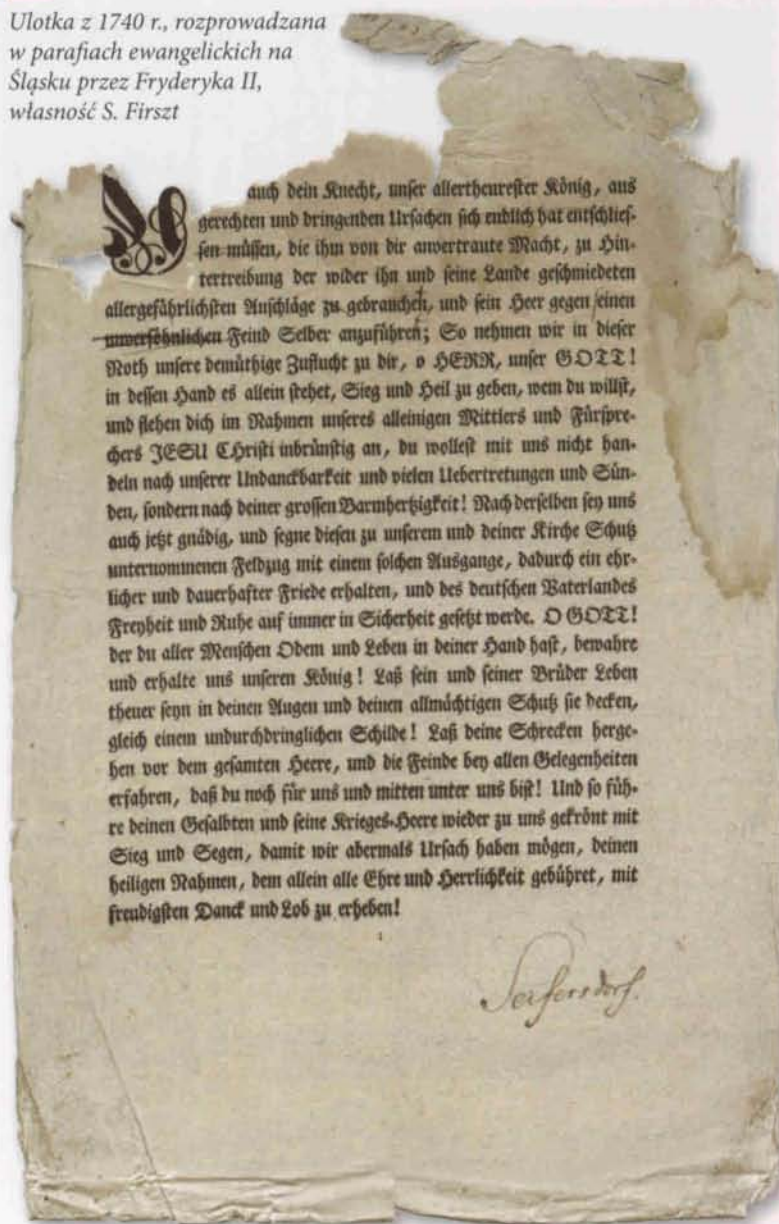 Ulotka z 1740 r., rozprowadzana
w parafiach ewangelickich na
Śląsku przez Fryderyka II,
własność S. Firszt
auch dein Knecht, unser allertheurester König, aus
gerechten und dringenden Ursachen sich endlich hat entschlies-
sen müssen, die ihm von dir anvertraute Macht, zu Hin-
tertreibung der wider ihn und seine Lande geschmiedeten
allergefährlichsten Anschläge zu gebrauchen, und sein Heer gegen seinen
unversöhnlichen Feind Selber anzuführen; So nehmen wir in dieser
Noth unsere demüthige Zuflucht zu dir, o HERR, unser GOTT!
in dessen Hand es allein stehet, Sieg und Heil zu geben, wem du willst,
und flehen dich im Nahmen unseres alleinigen Mittlers und Fürspre-
chers JESU CHristi inbrünstig an, du wollest mit uns nicht han-
deln nach unserer Undanckbarkeit und vielen Uebertretungen und Sün-
den, sondern nach deiner grossen Barmhertzigkeit! Nach derselben sey uns
auch jetzt gnädig, und segne diesen zu unserem und deiner Kirche Schutz
unternommenen Feldzug mit einem solchen Ausgange, dadurch ein ehr-
licher und dauerhafter Friede erhalten, und des deutschen Vaterlandes
Freyheit und Ruhe auf immer in Sicherheit gesetzt werde. O GOTT!
der du aller Menschen Odem und Leben in deiner Hand hast, bewahre
und erhalte uns unseren König! Laß sein und seiner Brüder Leben
theuer seyn in deinen Augen und deinen allmächtigen Schutz sie decken,
gleich einem undurchdringlichen Schilde! Laß deine Schrecken herge-
hen vor dem gesamten Heere, und die Feinde bey allen Gelegenheiten
erfahren, daß du noch für uns und mitten unter uns bist! Und so füh-
re deinen Gesalbten und seine Krieges-Heere wieder zu uns gekrönt mit
Sieg und Segen, damit wir abermals Ursach haben mögen, deinen
heiligen Nahmen, dem allein alle Ehre und Herrlichkeit gebühret, mit
freudigsten Danck und Lob zu erheben!
Seifersdorf.